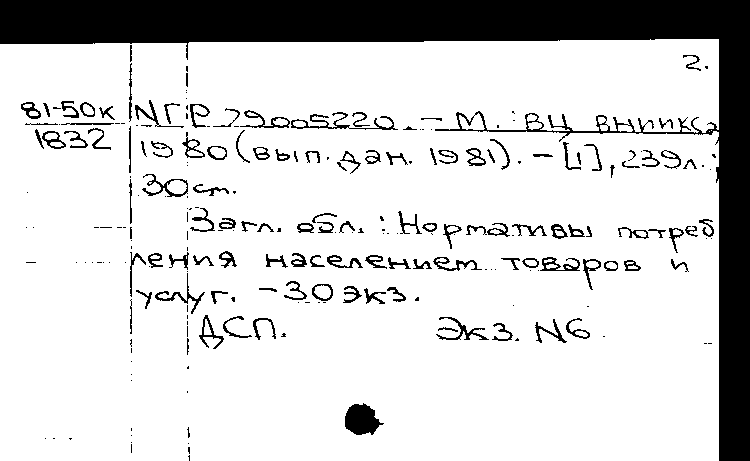 2.
81-50к NГР 79005220. – М. : ВЦ ВНИИКСа,
1832 1980 (вып. дан. 1981). – [1], 239л. ;
30 см.
Загл. обл. : Нормативы потреб
ления населением товаров и
услуг. – 30 экз.
ДСП. Экз. N6